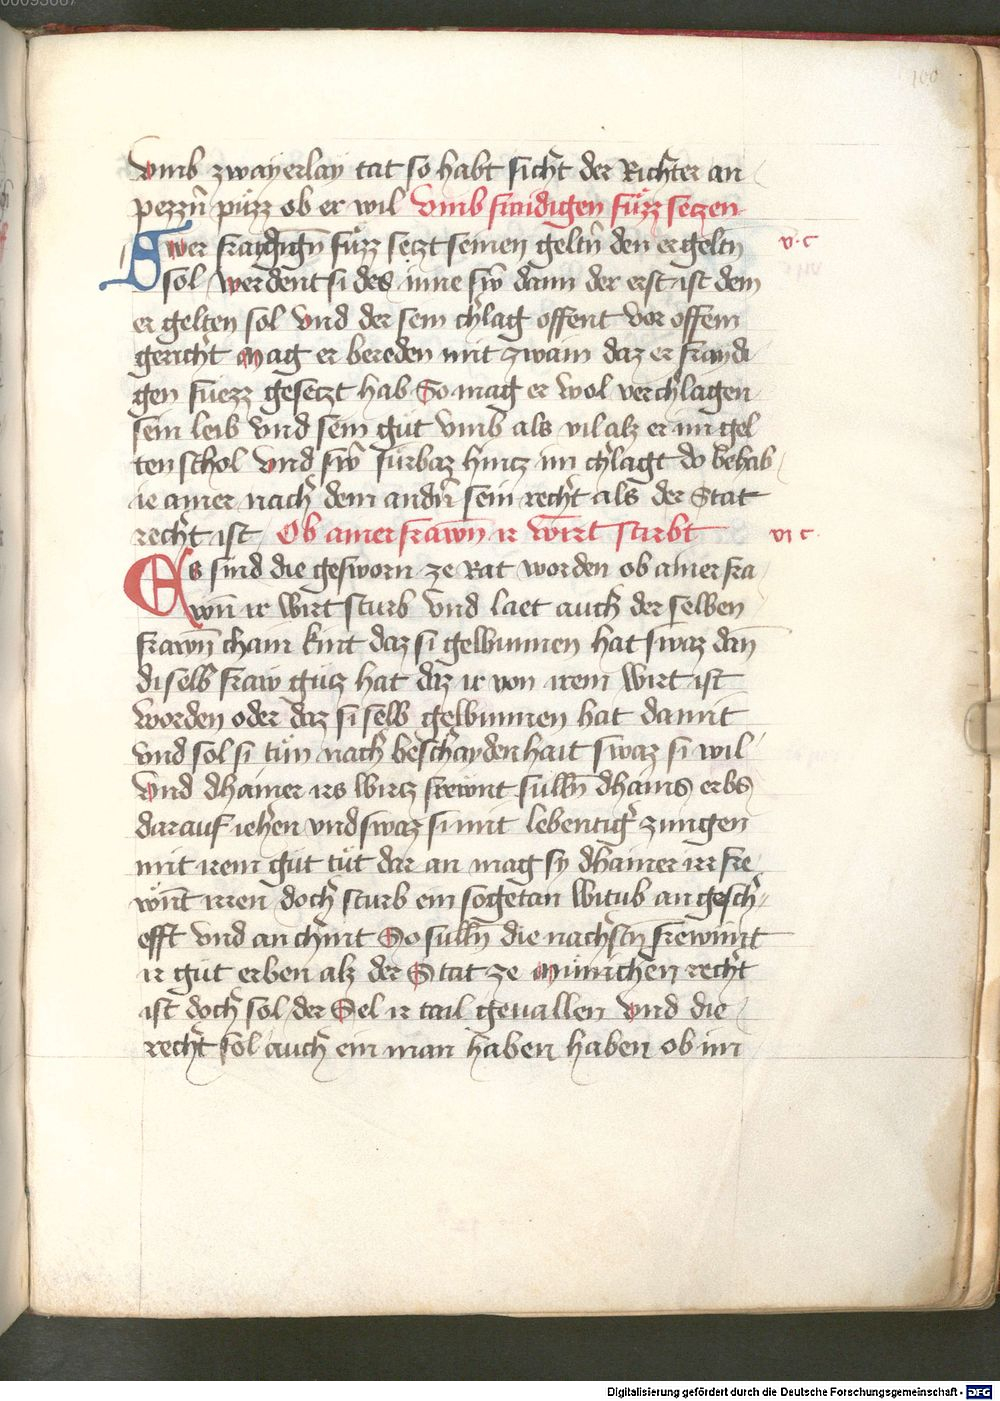 100
vmb zwayerlay tat so habt sicht der Richter an
pezzn̄ půzz ob er wil vmb fraidigen fůzz setzen
Swer fraydign̄ fůzz setzt seinen geltn̄ den er geltn̄ v·c
sol werdent si des inne sw̄ dann der erst ist dem
er gelten sol vnd der sein chlag offent vor offem
gericht mag er bereden mit zwain daz er fraydi
gen fuezz gesetzt hab So mag er wol verchlagen
sein leib vnd sein gůt vmb als vil alz er im gel
ten schol vnd sw̄ fürbaz hintz im chlagt do behab
ie ainer nach dem andn̄ sein recht als der Stat
recht ist Ob ainer frawn̄ ir wirt stirbt vi c·
Es sind die gesworn ze Rat worden ob ainer fra
wn̄ ir wirt sturb vnd laet auch der selben
frawn̄ chain kint daz si gewunnen hat swaz dan̄
di selb fraw gůtz hat daz ir von irem wirt ist
worden oder daz si selb gewunnen hat damit
vnd sol si tůn nach beschaydenhait swaz si wil
vnd dhainer irs wirtz frewnt sulln̄ dhains erbs
darauf iehen vnd swaz si mit lebentiger zungen
mit irem gůt tůt dar an mag sy dhainer irr fre
wn̄t irren doch sturb ein sogetan witub an gesch
efft vnd an chint So sulln̄ die nachstn̄ frewnnt
ir gůt erben alz der Stat ze münichen recht
ist doch sol der Sel ir tail geuallen vnd die
recht sol auch ein man haben haben ob im
Digitalisierung gefördert durch die Deutsche Forschungsgemeinschaft - DFG